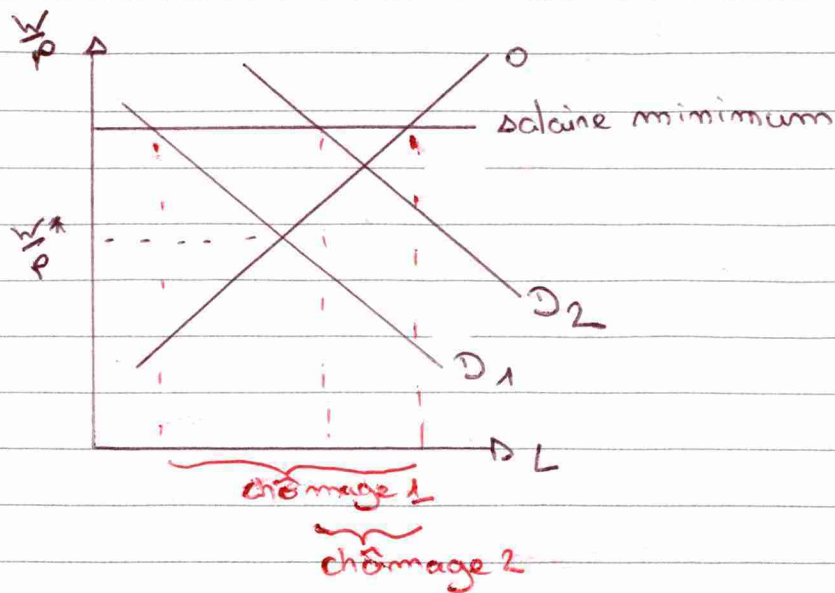 W/P
O
salaire minimum
W/P*
D2
D1
L
chômage 1
chômage 2